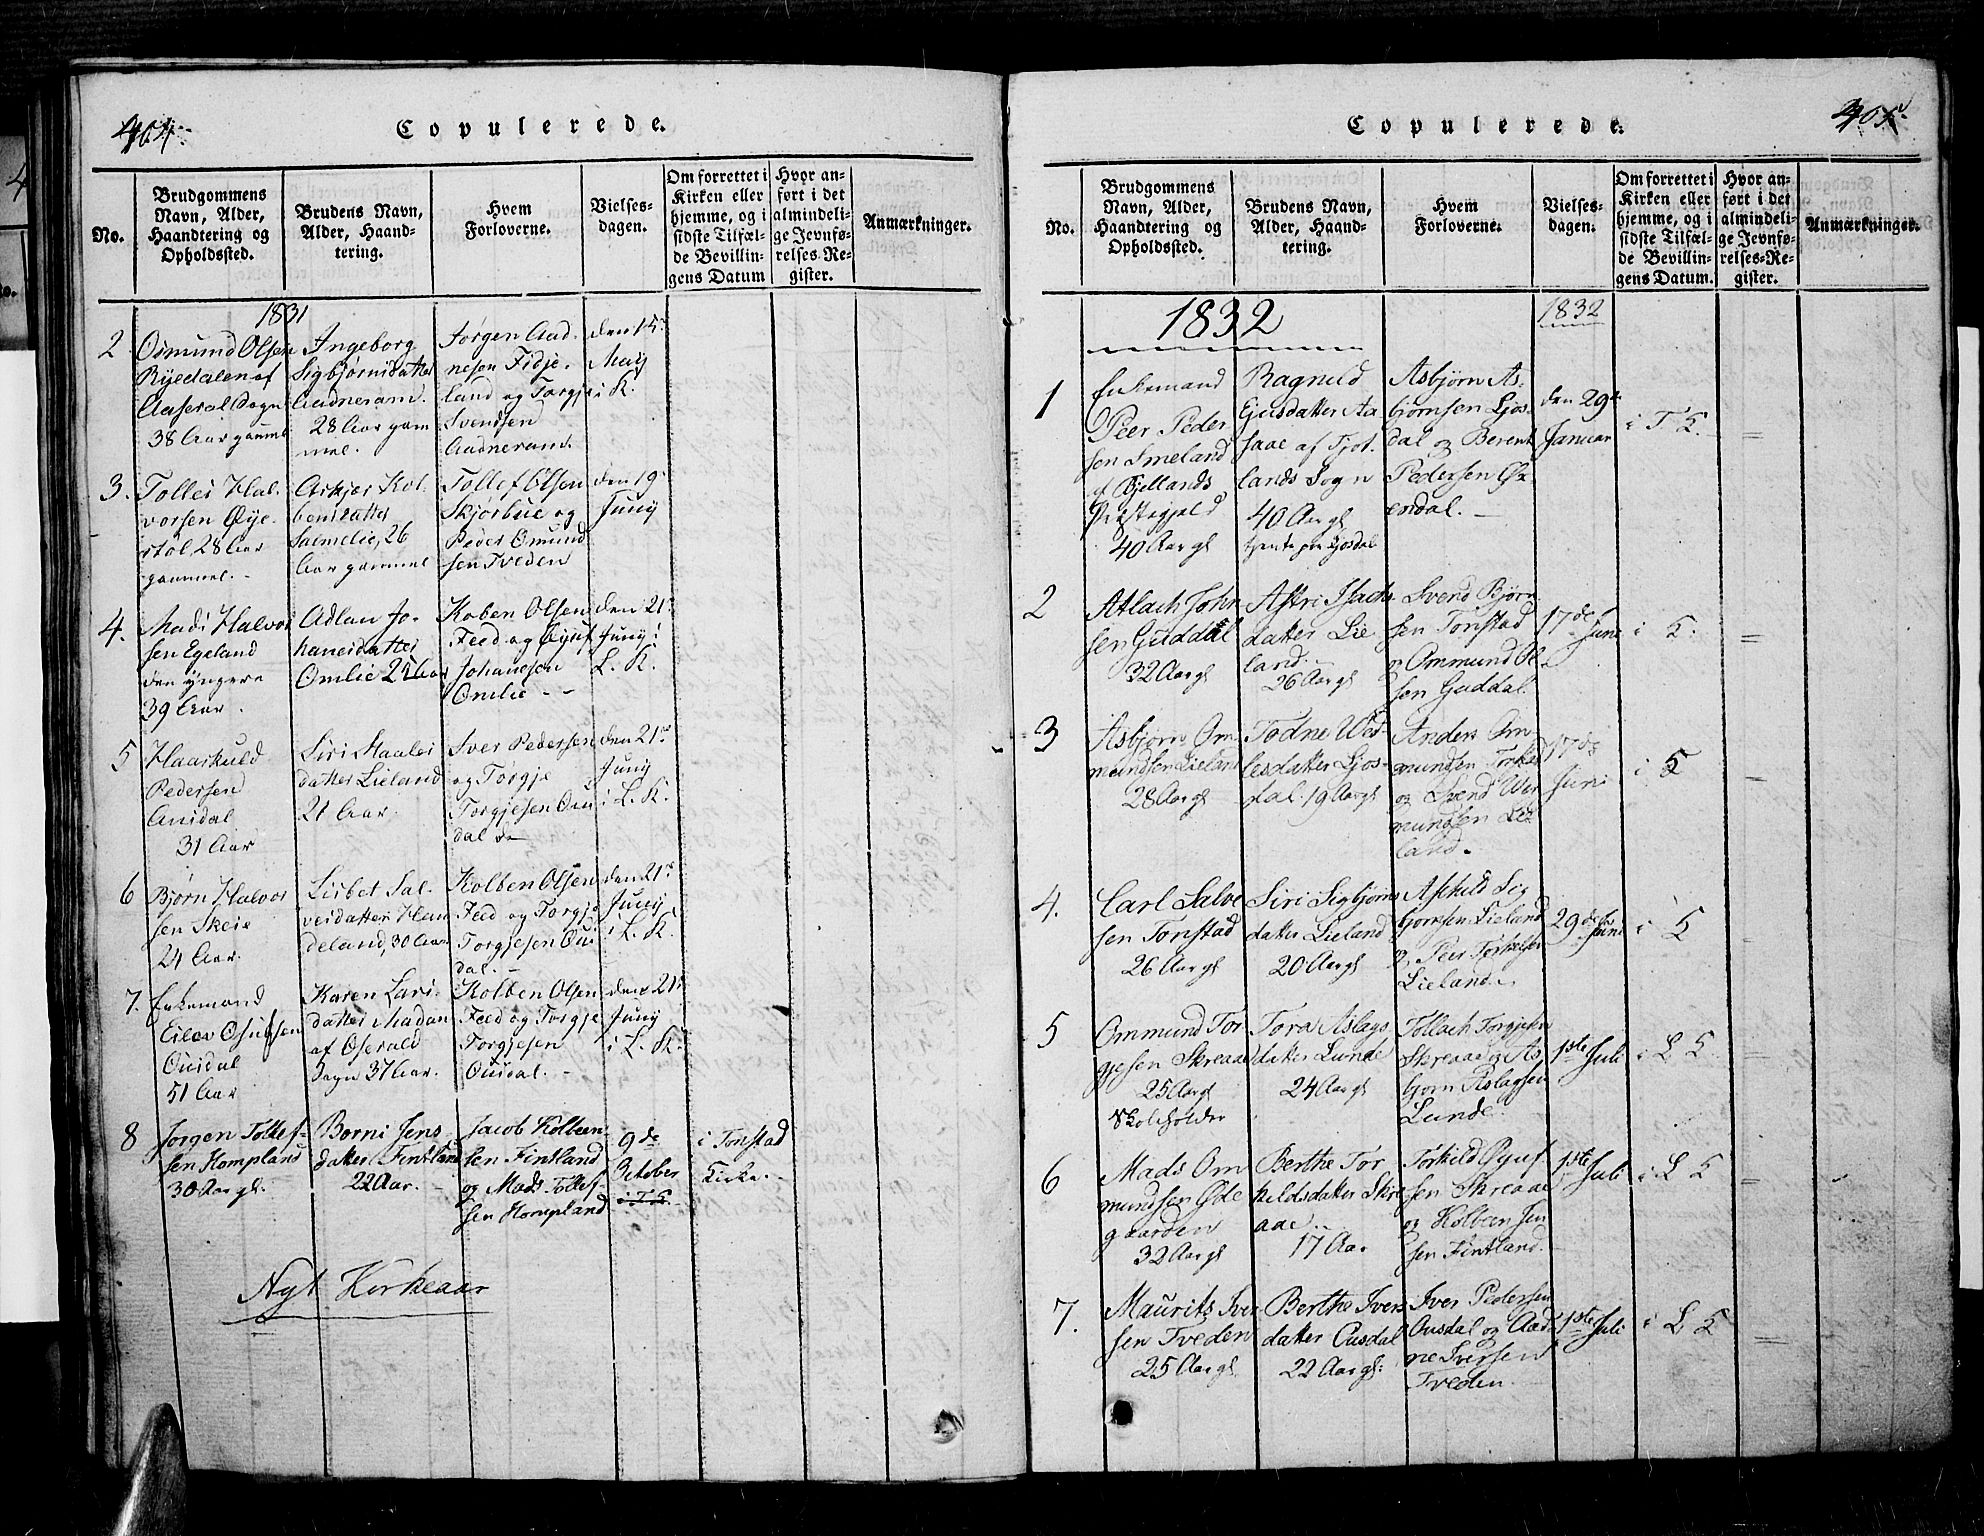 404.
Copulerede.
No.
Brudgommens
Navn, Alder,
Haandtering og
Opholdssted.
Brudens Navn,
Alder, Haand-
tering.
Hvem
Forloverne.
Vielses-
dagen.
Om forrettet i
Kirken eller
hjemme, og i
sidste Tilfæl-
de Bevillin-
gens Datum
Hvor an-
ført i det
almindeli-
ge Jevnfø-
relses-Re-
gister.
Anmærkninger.
1831
2
Osmund Olsen
Ryedalen af
Aaseral Sogn
38 Aar gamml
Ingeborg
Sigbjørnsdatter
Aadneram.
28 Aar gam
mel.
Jørgen Aad-
nesen Fidje-
land og Torgje
Svendsen
Aadneram.
den 15
May
i K.
3.
Tollei Hal-
vorsen Øye-
støl 28 Aar
gammel.
Askjer Kol-
bensdatter
26
Aar gammel
Tollef Olsen
Skjorbue og
Peder Omund
sen Tveden
den 19
Juny
4.
Mads Halvor
sen Egeland
den yngere
39 Aar.
Adlau Jo-
hanesdatter
Omlie 25 Aar
Koben Olsen
Feed og Ojuf
Johanesen
Omlie
den 21
Juny i
L. K.
5
Haarkuld
Pedersen
Ousdal
31 Aar
Siri Staales
datter Lieland
21 Aar.
Iver Pedersen
og Torgje
Torgjesen Ous
dal
den 21
Juny
i L. K.
6
Bjørn Halvor
sen Skeie
24 Aar.
Lisbet Sal-
vesdatter Hau
deland, 30 Aar
Kolben Olsen
Feed og Torgje
Torgjesen Ous
dal.
den 21
Juny
i L. K.
7.
Enkemand
Eilev Osufsen
Ousdal
51 Aar
Karen Lars-
datter Madan
af Oserald
Sogn 37 Aar.
Kolben Olsen
Feed og Torgje
Torgjesen
Ousdal.
den 21
Juny
i L. K.
8
Jørgen Tollef-
sen Hompland
30 Aar gl.
Børni Jens
datter Fintland
22 Aar.
Jacob Kolbeen-
sen Fintland
og Mads Tollef-
sen Hompland
9de
October
i T K
i Tonstad
Kirke.
Nyt Kirkeaar
405.
Copulerede.
No.
Brudgommens
Navn, Alder,
Haandtering og
Opholdssted.
Brudens Navn,
Alder, Haand-
tering.
Hvem
Forloverne.
Vielses-
dagen.
Om forrettet i
Kirken eller
hjemme, og i
sidste Tilfæl-
de Bevillin-
gens Datum.
Hvor an-
ført i det
almindeli-
ge Jevnfø-
relses-Re-
gister.
Anmærkninger.
1832
1832
1
Enkemand
Peer Peder
sen Imeland
af Bjellands
Præstegjeld
40 Aar gl
Ragnild
Ejusdatter Aa
saae af Fjot-
lands Sogn
40 Aar gl
tjente paa Josdal
Asbjørn As-
bjørnsen Ljos-
dal og Berent
Pedersen Øx-
endal.
den 29de
Januar
i T K.
2
Atlach John
sen Guddal
32 Aar gl
Astri Isachs
datter Lie
land.
26 Aar gl
Svend Bjørn
sen Tonstad
og Ommund Ol
sen Guddal.
17de
Juni
i K.
3
Asbjørn Om
mundsen Lieland
28 Aar gl
Todne Wer-
lesdatter Ljos-
dal. 19 Aar gl
Anders Om
mundsen
og Svend Wer
mundsen Lie
land.
17de
Juni
i K
4.
Carl Salve
sen Tonstad
26 Aar gl
Siri Sigbjørns
datter Lieland
20 Aar gl
Askild Sig
bjørnsen Lieland
og Peer Torkelsen
Lieland.
29de Juni
i K
5
Ommund Tor
gjesen Skreaae
25 Aar gl
Skoleholder
Tora Aslags
datter Lunde
24 Aar gl
Tollach Torgjesen
Skreaae og As
bjørn Aslagsen
Lunde.
1ste Juli
i L K.
6
Mads Om
mundsen Øde
gaarden
32 Aar gl
Berthe Tor
kildsdatter Skre
aae.
17 Aa.
Torkild Ojuf-
sen Skreaae
og Kolbeen Jen
sen Fintland.
1ste Juli
i L K
7.
Maurits Iver
sen Tveden
25 Aar gl.
Berthe Ivers
datter Ousdal
22 Aar gl:
Iver Pedersen
Ousdal og Aad-
ne Iversen
Tveden.
1ste Juli
i L K